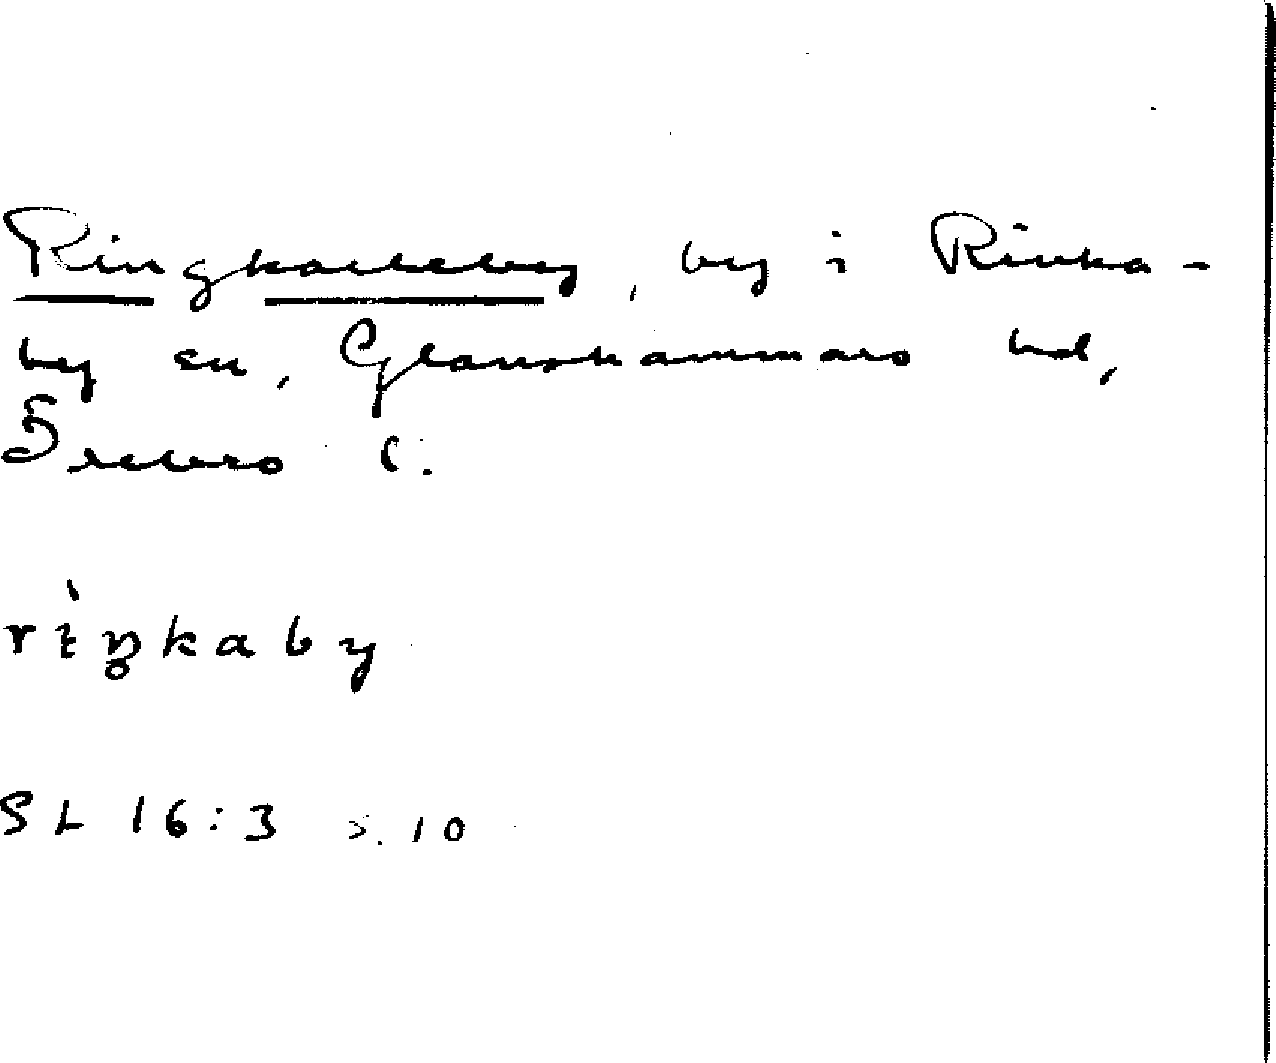 Ringkarleby, by i Rinka-
by sn, Glanshammars hd,
Örebro l.
rìŋkaby
SL 16:3 s. 10